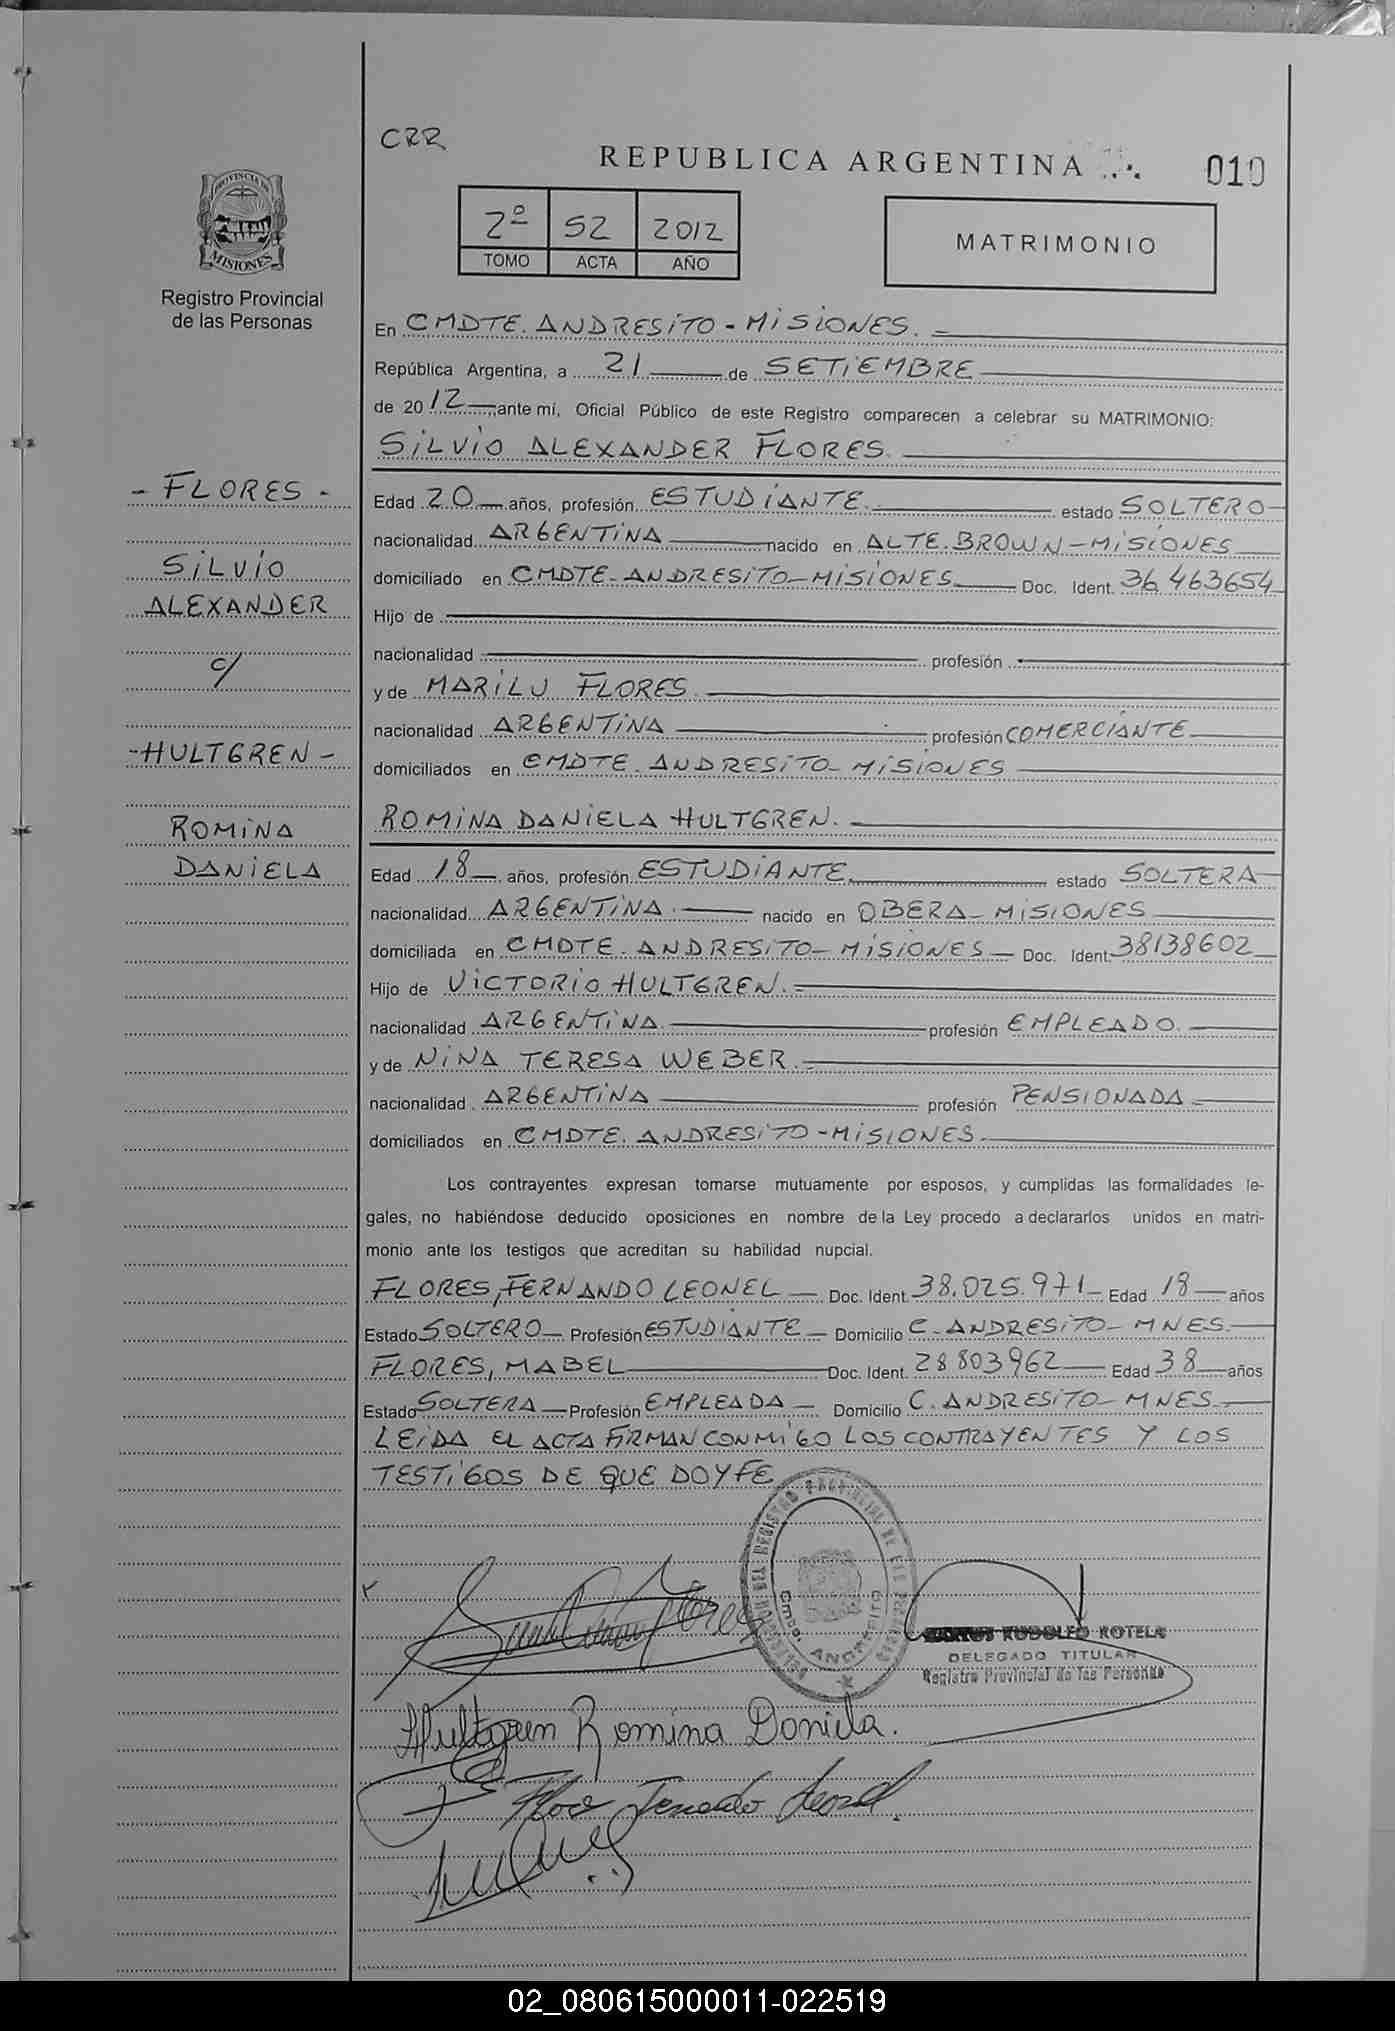 CRR
REPUBLICA ARGENTINA
010
PROVINCIA DE
MISIONES
Registro Provincial
de las Personas
2º 52 2012
TOMO ACTA AÑO
MATRIMONIO
En CMDTE. ANDRESITO - MISIONES.
República Argentina, a 21 de SETIEMBRE
de 2012 ante mí, Oficial Público de este Registro comparecen a celebrar su MATRIMONIO:
SILVIO ALEXANDER FLORES.
Edad 20 años, profesión ESTUDIANTE. estado SOLTERO
nacionalidad ARGENTINA nacido en ALTE. BROWN - MISIONES
domiciliado en CMDTE - ANDRESITO - MISIONES Doc. Ident. 36 463654
Hijo de
nacionalidad profesión
y de MARILU FLORES
nacionalidad ARGENTINA profesión COMERCIANTE
domiciliados en CMDTE. ANDRESITO - MISIONES
- FLORES -
SILVIO
ALEXANDER
c/
- HULTGREN -
ROMINA
DANIELA
ROMINA DANIELA HULTGREN.
Edad 18 años, profesión ESTUDIANTE. estado SOLTERA
nacionalidad ARGENTINA nacido en OBERA - MISIONES
domiciliada en CMDTE. ANDRESITO - MISIONES Doc. Ident. 38138602
Hijo de VICTORIO HULTGREN.
nacionalidad ARGENTINA profesión EMPLEADO.
y de NINA TERESA WEBER.
nacionalidad ARGENTINA profesión PENSIONADA
domiciliados en CMDTE. ANDRESITO - MISIONES.
Los contrayentes expresan tomarse mutuamente por esposos, y cumplidas las formalidades le-
gales, no habiéndose deducido oposiciones en nombre de la Ley procedo a declararlos unidos en matri-
monio ante los testigos que acreditan su habilidad nupcial.
FLORES, FERNANDO LEONEL Doc. Ident. 38.025.971 Edad 18 años
Estado SOLTERO Profesión ESTUDIANTE Domicilio C. ANDRESITO - MNES.
FLORES, MABEL Doc. Ident. 28 803962 Edad 38 años
Estado SOLTERA Profesión EMPLEADA Domicilio C. ANDRESITO - MNES
LEIDA EL ACTA FIRMAN CONMIGO LOS CONTRAYENTES Y LOS
TESTIGOS DE QUE DOY FE
Cmdo. ANDRESITO
RUDOLFO ROTELA
DELEGADO TITULAR
Registro Provincial de las Personas
Flores
Hultgren Romina Daniela.
02_080615000011-022519